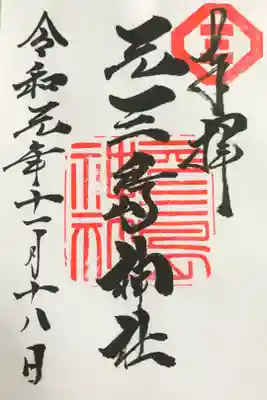 奉拝
元三島神社
令和元年十一月十八日